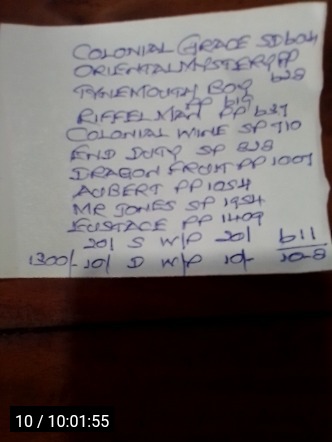 COLONIAL GRACE SD b04
ORIENTAL MYSTERY PP
b28
TYNEMOUTH BOY
PP b19
RIFFELMAN PP b37
COLONIAL WINE SP 710
END DUTY SP 828
DRAGON FRUIT PP 1007
AUBERT PP 1054
MR JONES SP 1954
EUSTACE PP 1409
20/ S W/P 20/ b11
1300/- 10/ D W/P 10/- 10-8
10 / 10:01:55